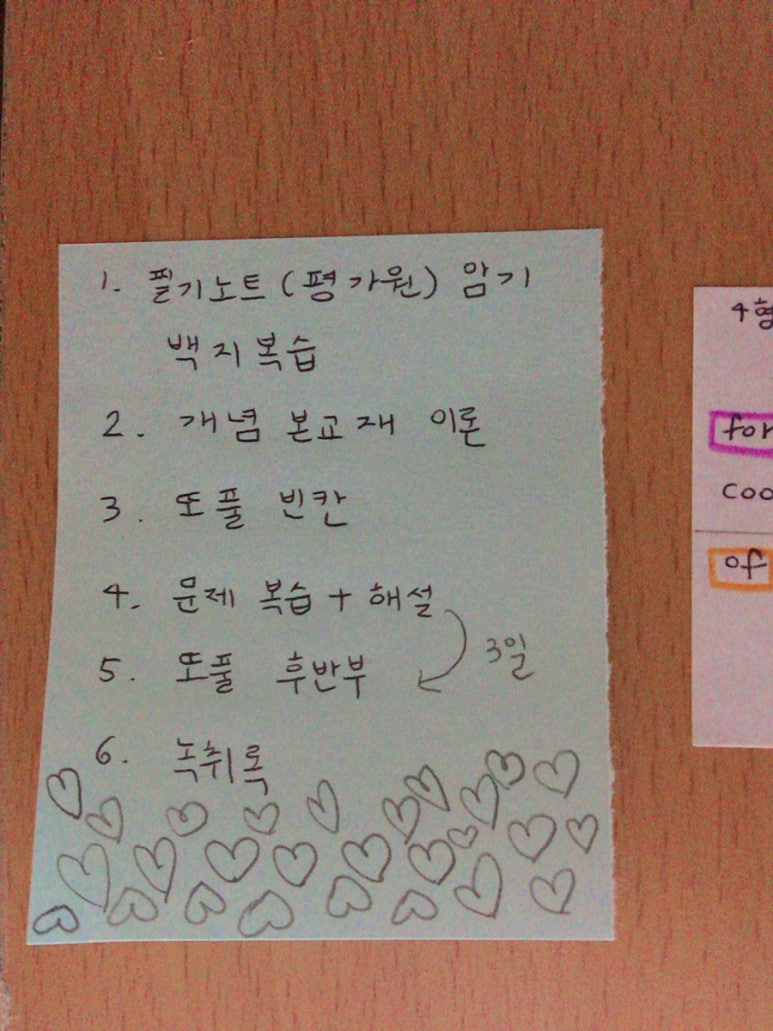 1. 필기노트 (평가원) 암기
백지복습
2. 개념 본교재 이론
3. 또풀 빈칸
4. 문제 복습 + 해설
3일
5. 또풀 후반부
6. 녹취록
4형
for
coo
of